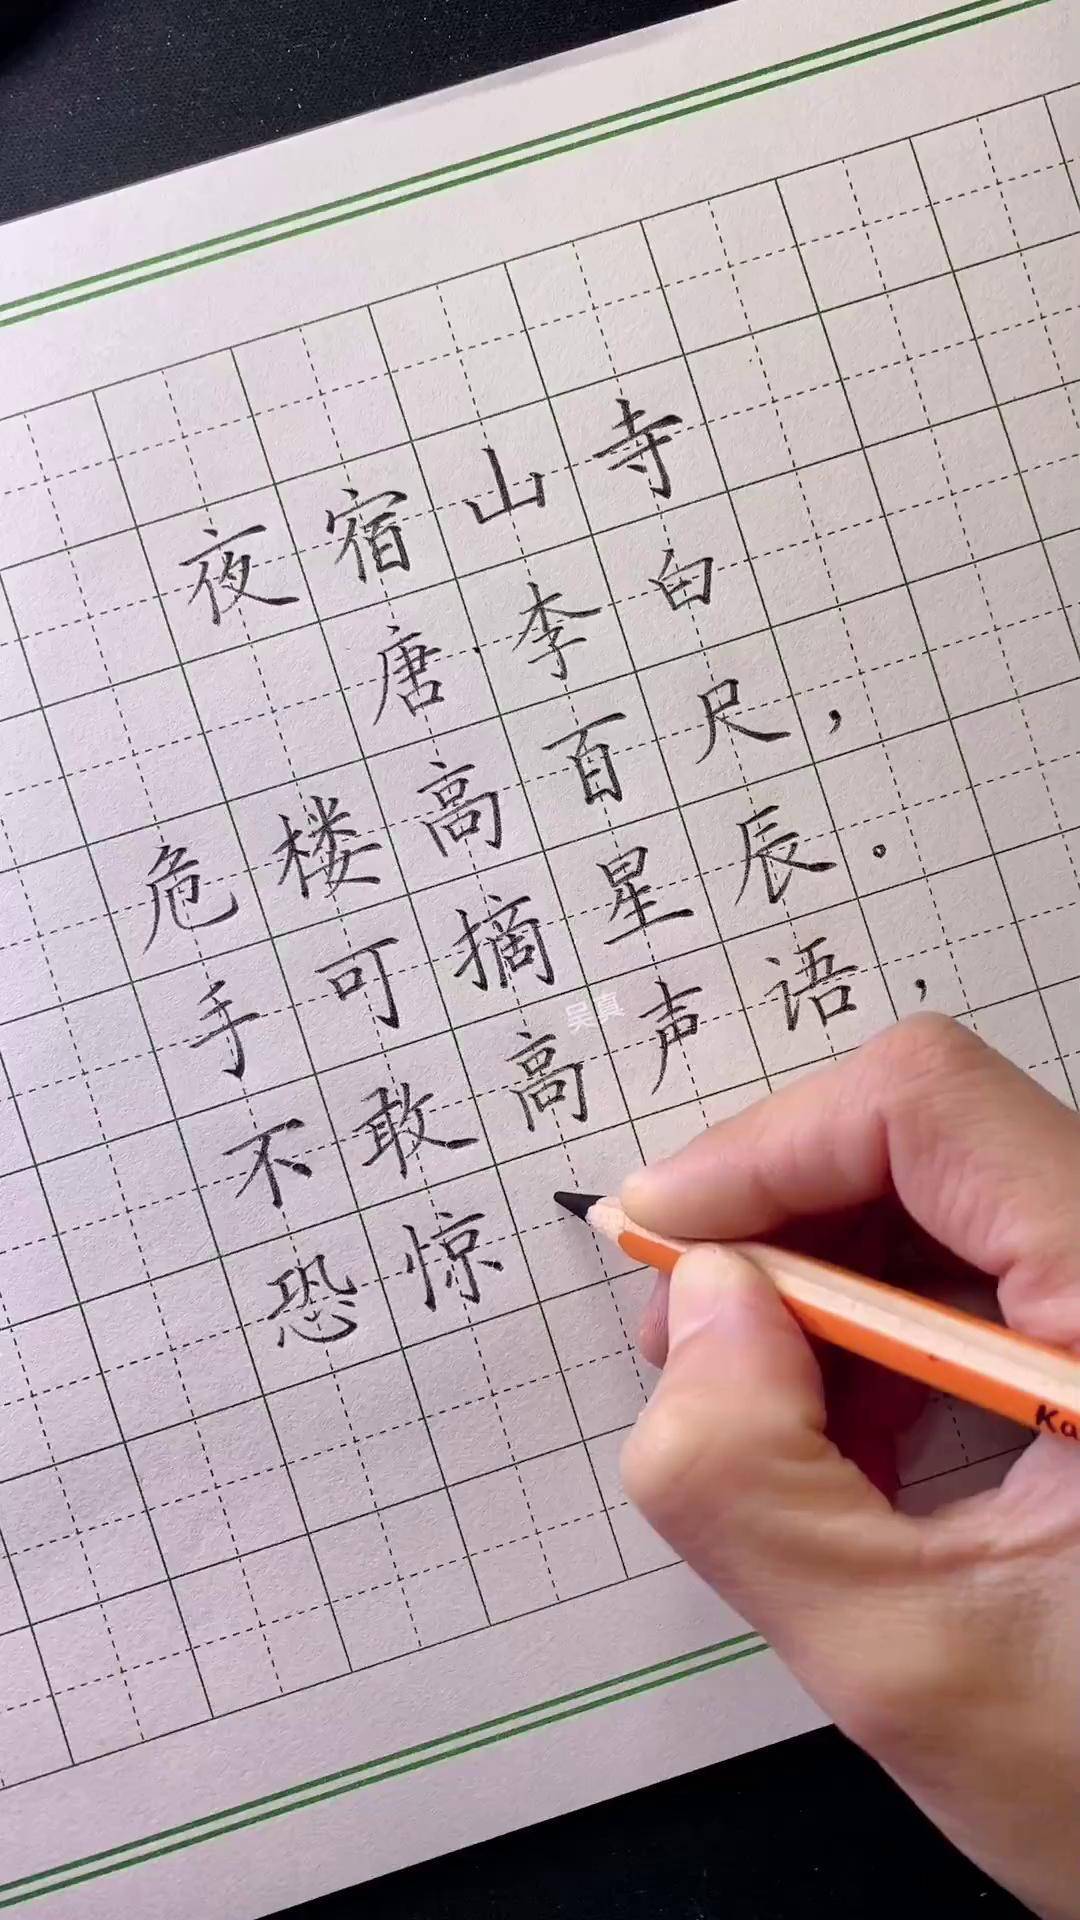 夜宿山寺
唐·李白
危楼高百尺，
手可摘星辰。
不敢高声语，
恐惊
吴真
Ka